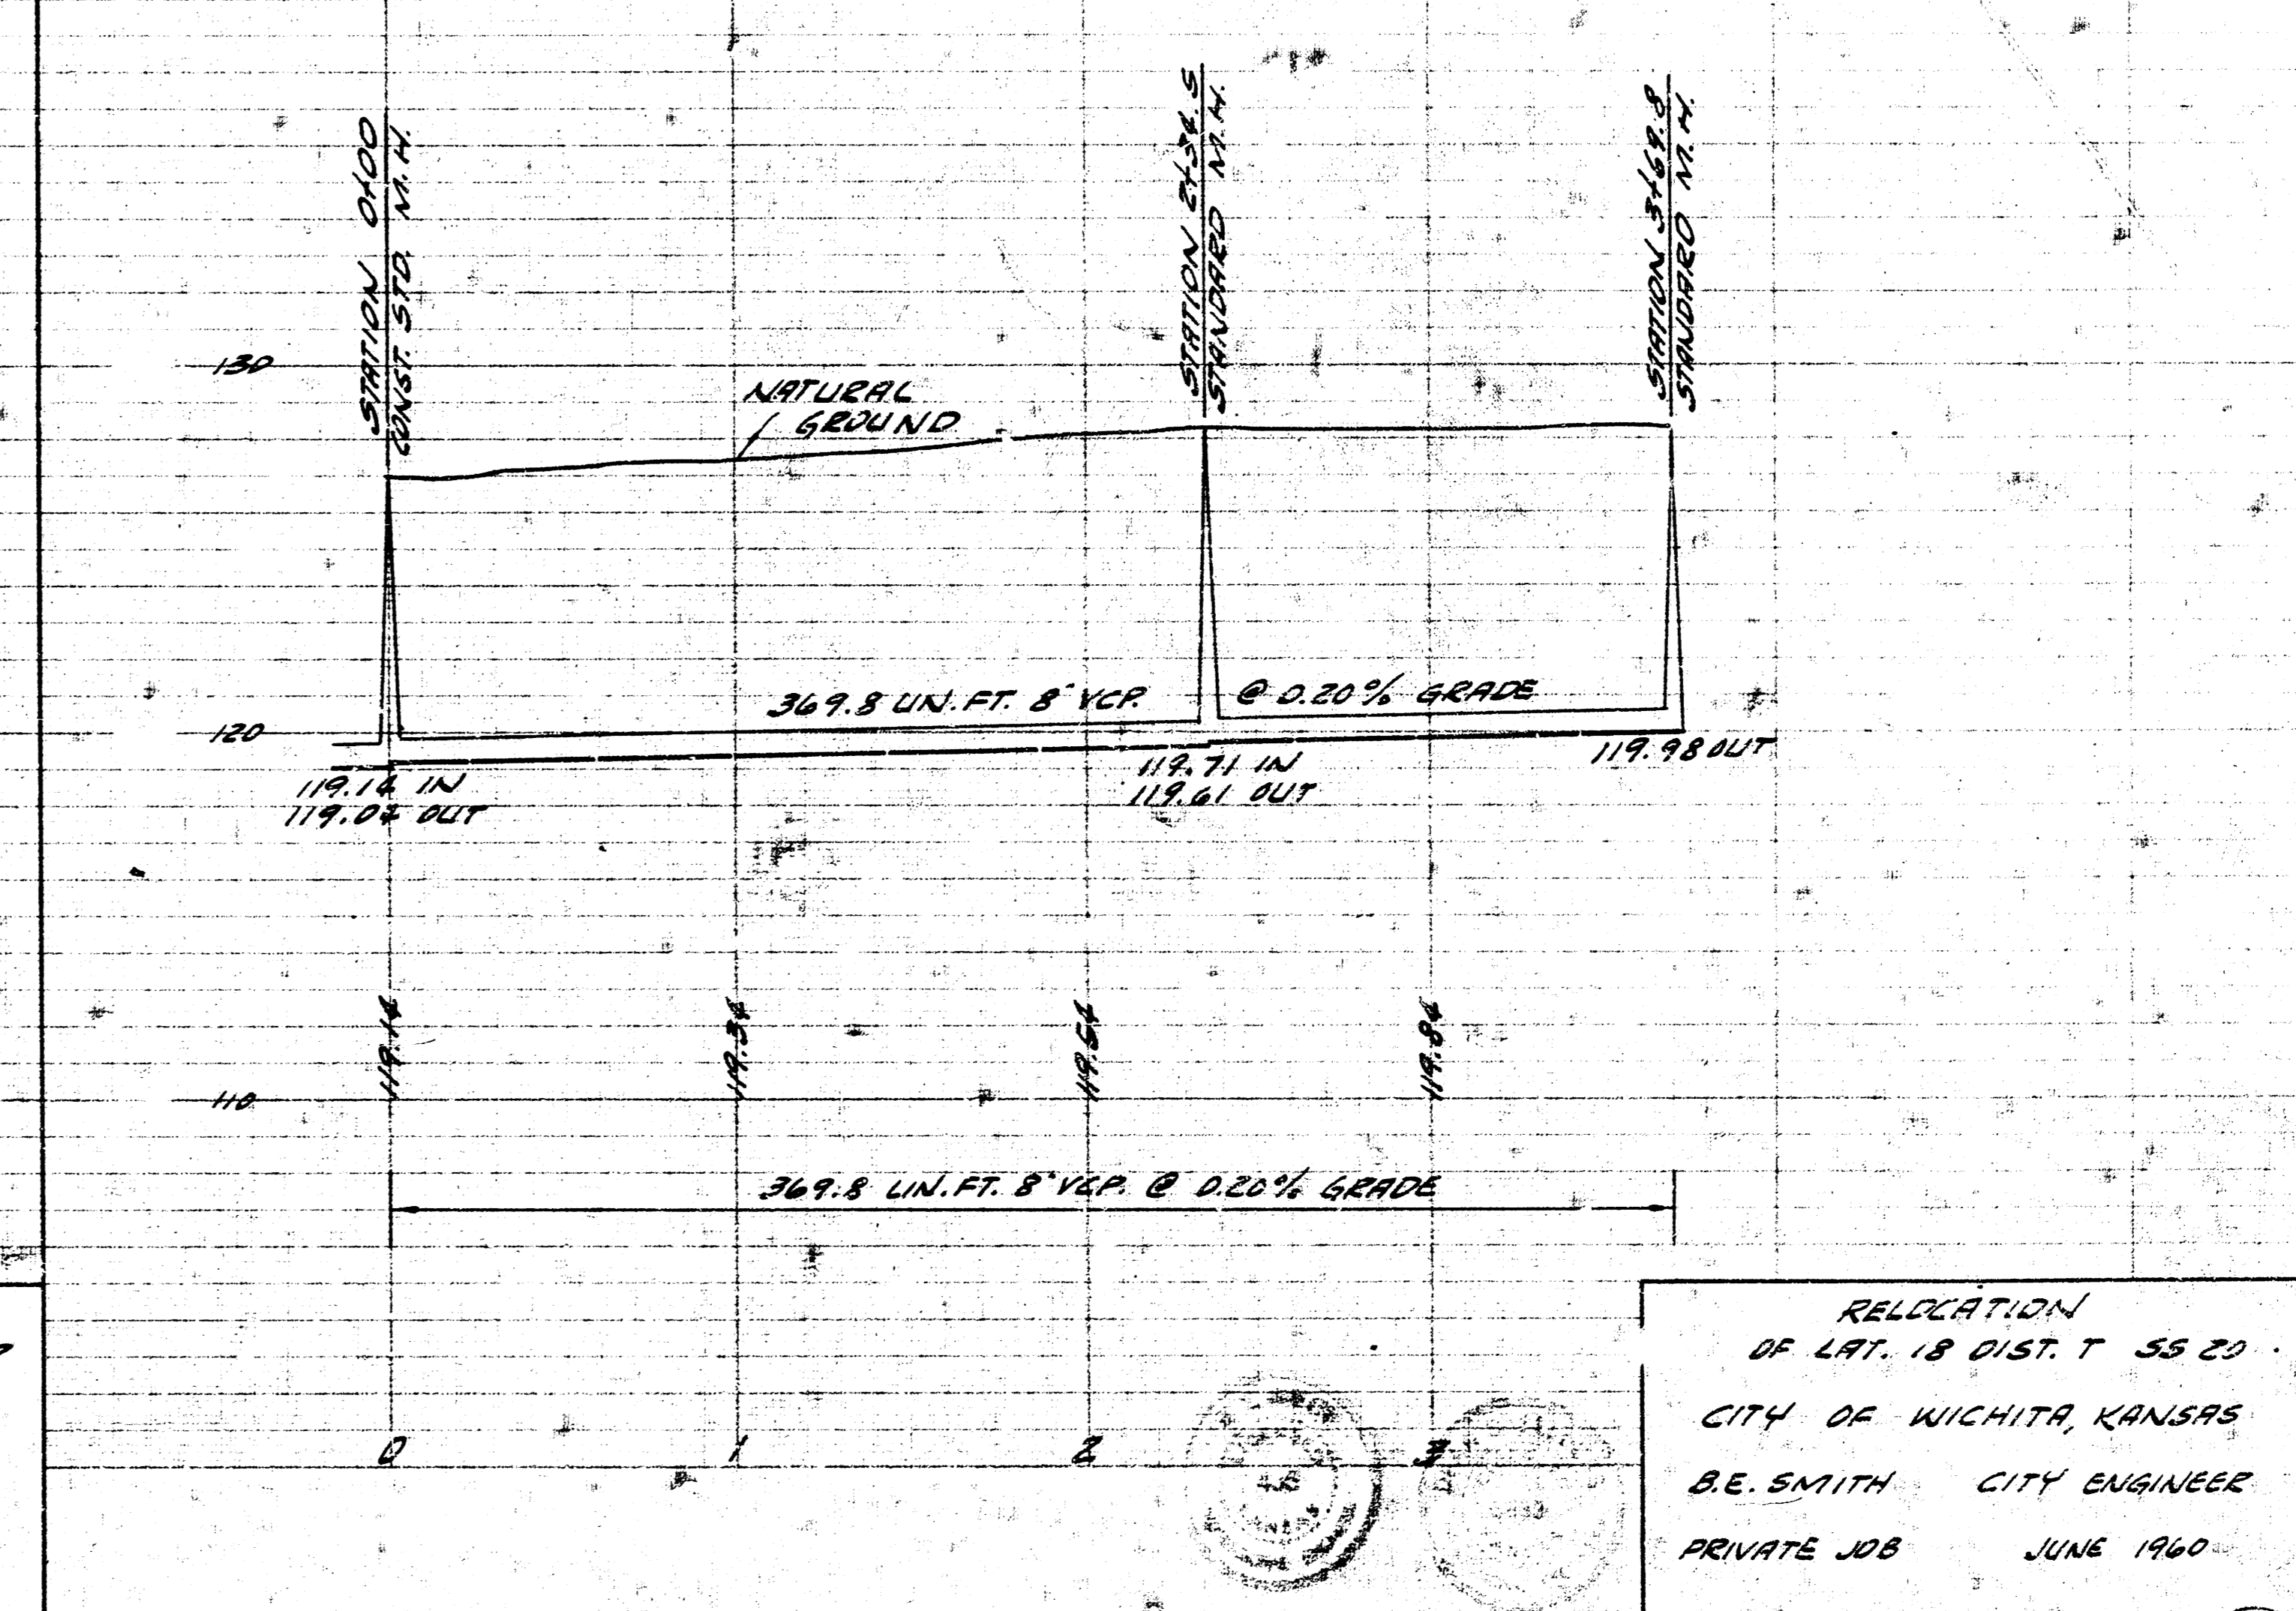 STATION 0+00
CONST. STD. M.H.
STATION 2+34.5
STANDARD M.H.
STATION 3+69.8
STANDARD M.H.
130
NATURAL
GROUND
369.8 LIN. FT. 8" VCP. @ 0.20% GRADE
120
119.14 IN
119.04 OUT
119.71 IN
119.61 OUT
119.98 OUT
119.14
119.34
119.54
119.84
110
369.8 LIN. FT. 8" VCP. @ 0.20% GRADE
0 1 2 3
RELOCATION
OF LAT. 18 DIST. T SS 20
CITY OF WICHITA, KANSAS
B.E. SMITH CITY ENGINEER
PRIVATE JOB JUNE 1960